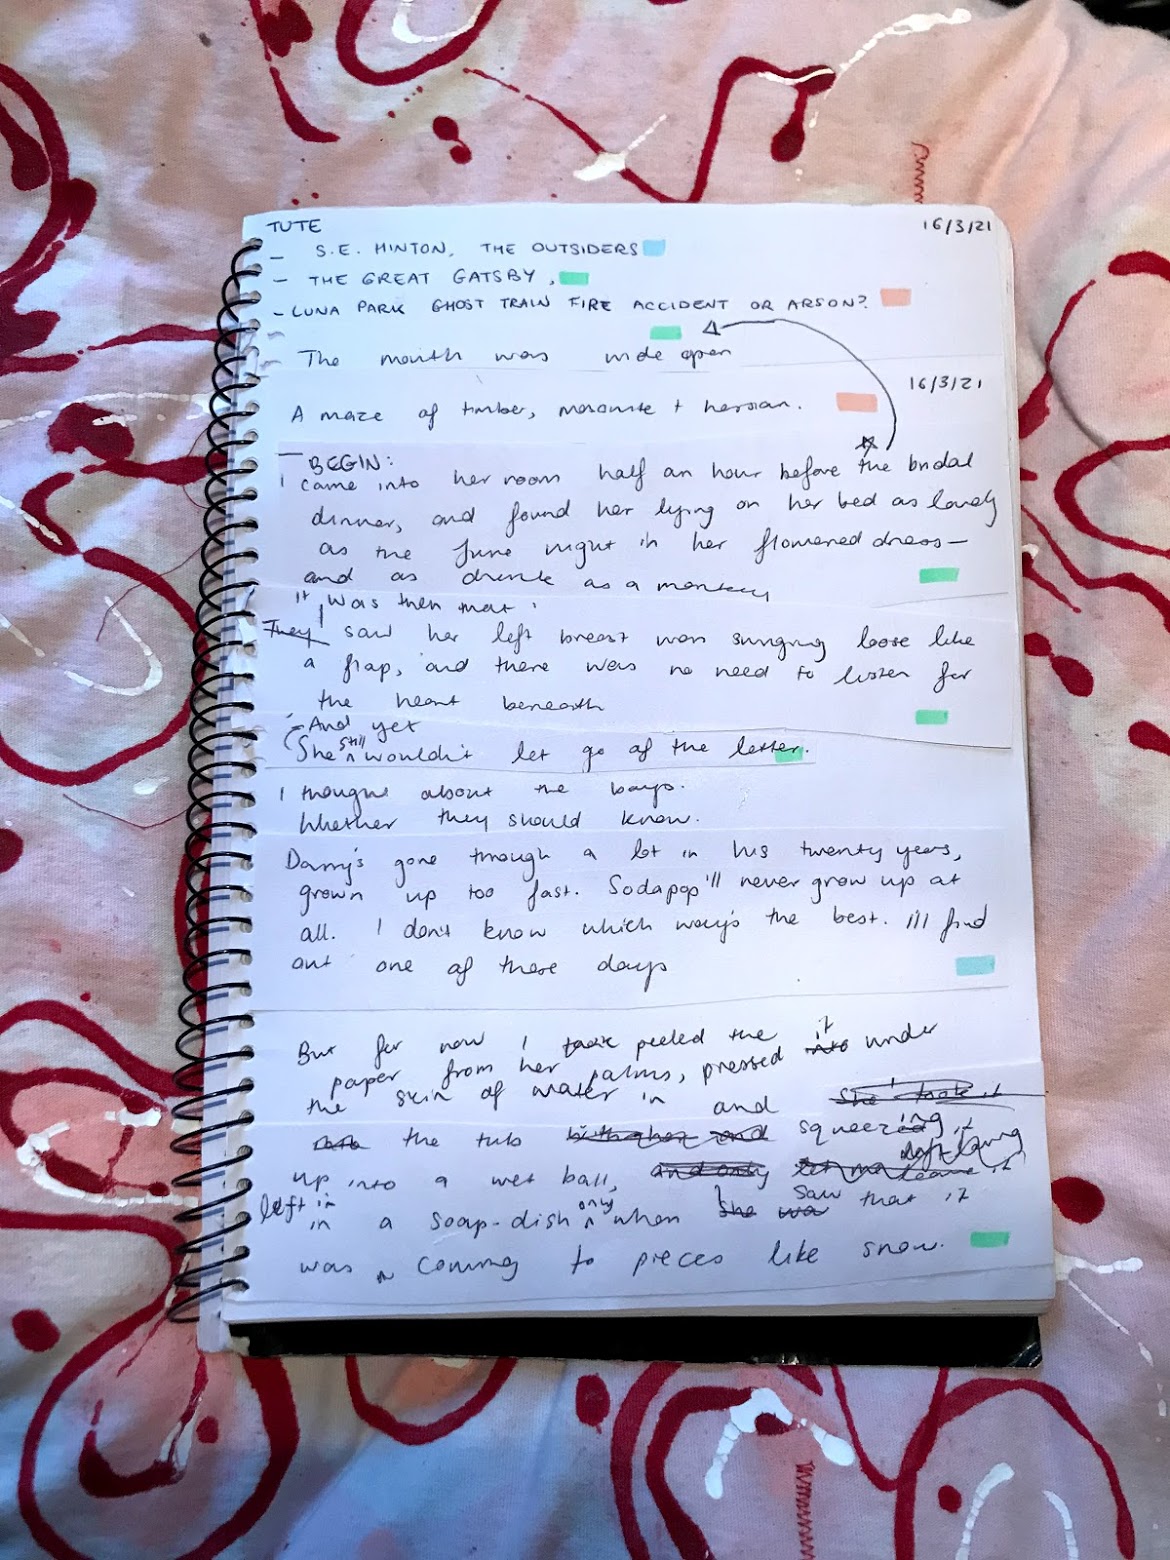 TUTE 16/3/21
- S.E. HINTON, THE OUTSIDERS
- THE GREAT GATSBY,
- LUNA PARK GHOST TRAIN FIRE ACCIDENT OR ARSON?
The mouth was wide open
16/3/21
A maze of timber, masonite + hessian.
BEGIN:
I came into her room half an hour before the bridal
dinner, and found her lying on her bed as lovely
as the June night in her flowered dress—
and as drunk as a monkey
it was then that I
They saw her left breast was swinging loose like
a flap, and there was no need to listen for
the heart beneath
- And yet
She still wouldn't let go of the letter.
I thought about the boys.
Whether they should know.
Darry's gone through a lot in his twenty years,
grown up too fast. Sodapop'll never grow up at
all. I don't know which way's the best. I'll find
out one of these days
But for now I took peeled the
paper from her palms, pressed into it under
the skin of water in and she took it
the tub with her and squeezing it
up into a wet ball, and only let me leave it
left in
in a soap-dish only when she wa I saw that it
was coming to pieces like snow.